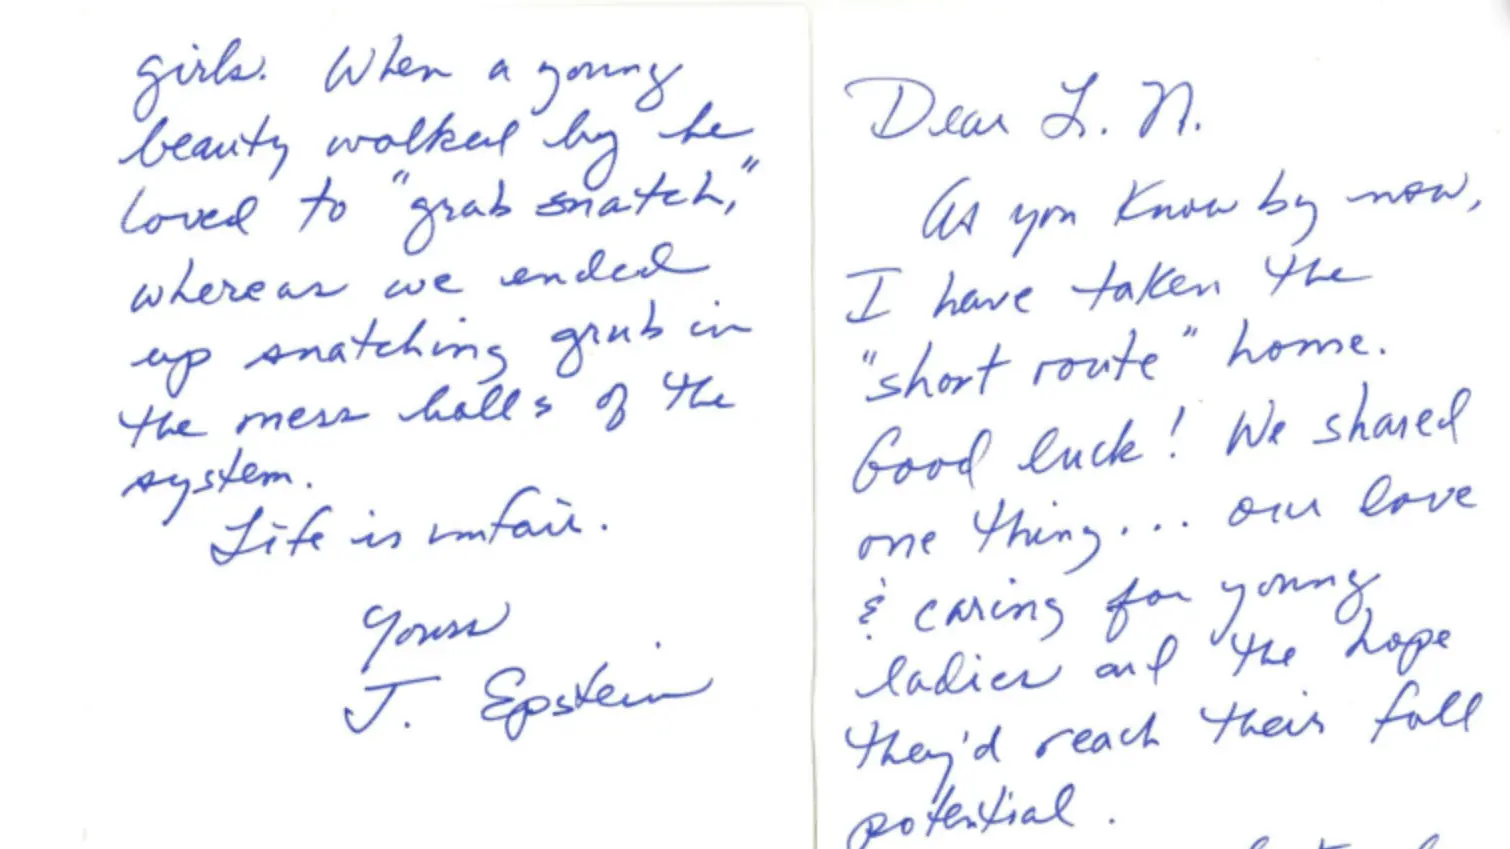 Dear L. N.
As you know by now,
I have taken the
"short route" home.
Good luck! We shared
one thing... our love
& caring for young
ladies and the hope
they'd reach their full
potential.
girls. When a young
beauty walked by he
loved to "grab snatch,"
whereas we ended
up snatching grub in
the mess halls of the
system.
Life is unfair.
Yours
J. Epstein